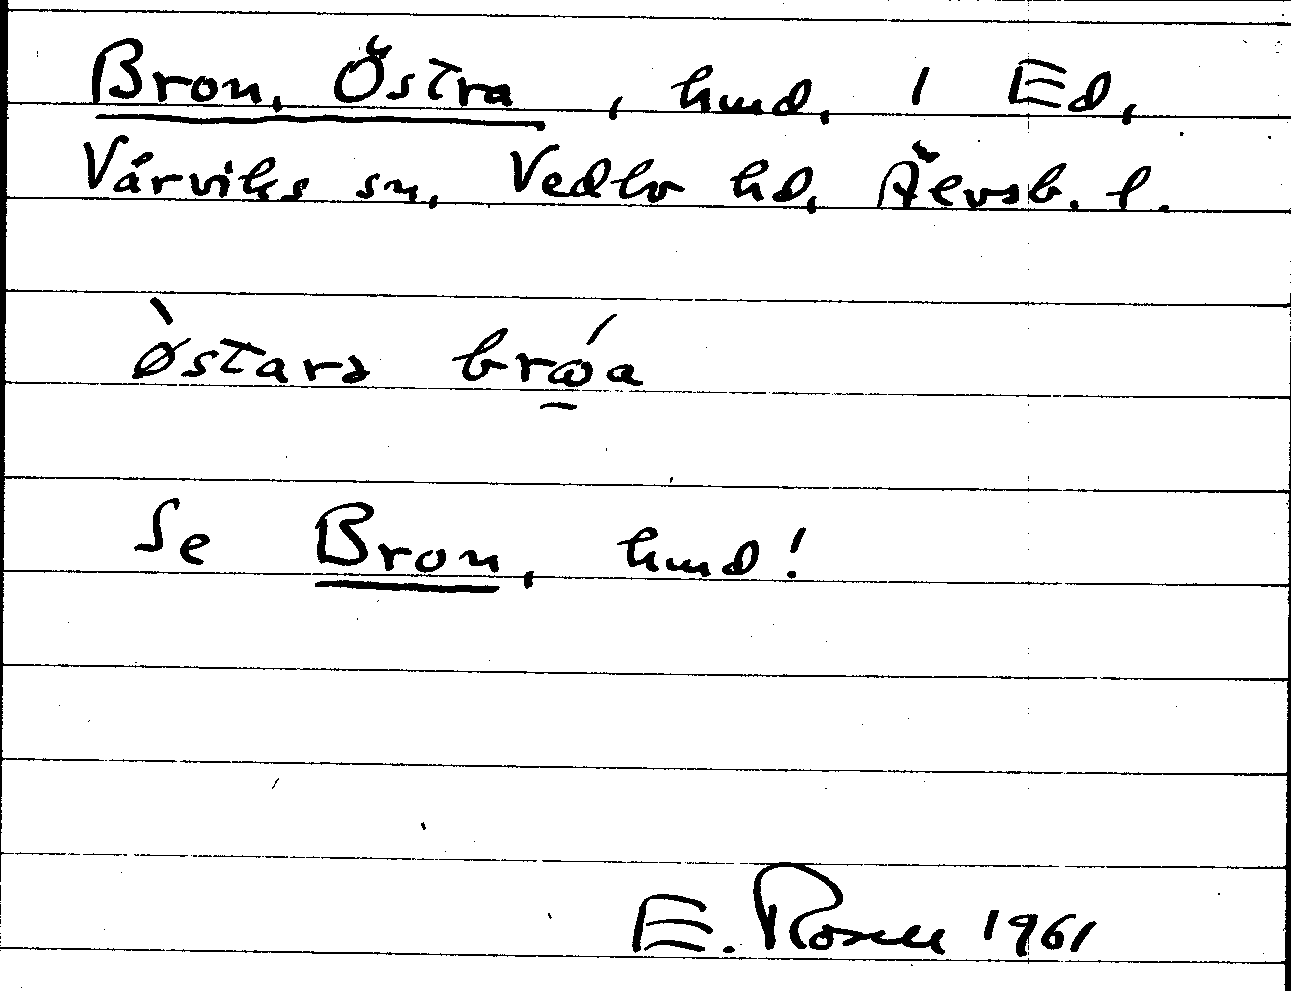 Bron, Östra, hmd, i Ed,
Vårviks sn, Vedbo hd, Älvsb. l.
òstarə brώ̱a
Se Bron, hmd!
E. Rosell 1961